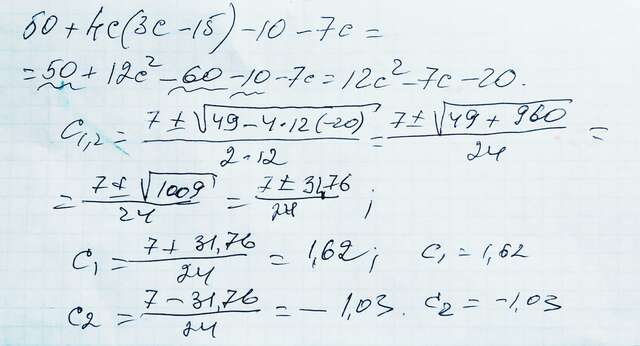 50 + 4c(3c - 15) - 10 - 7c =
= 50 + 12c² - 60 - 10 - 7c = 12c² - 7c - 20.
c₁,₂ = (7 ± √(49 - 4·12(-20)))/(2·12) = (7 ± √(49 + 960))/24 =
= (7 ± √1009)/24 = (7 ± 31,76)/24 ;
c₁ = (7 + 31,76)/24 = 1,62 ; c₁ = 1,62
c₂ = (7 - 31,76)/24 = - 1,03 . c₂ = -1,03